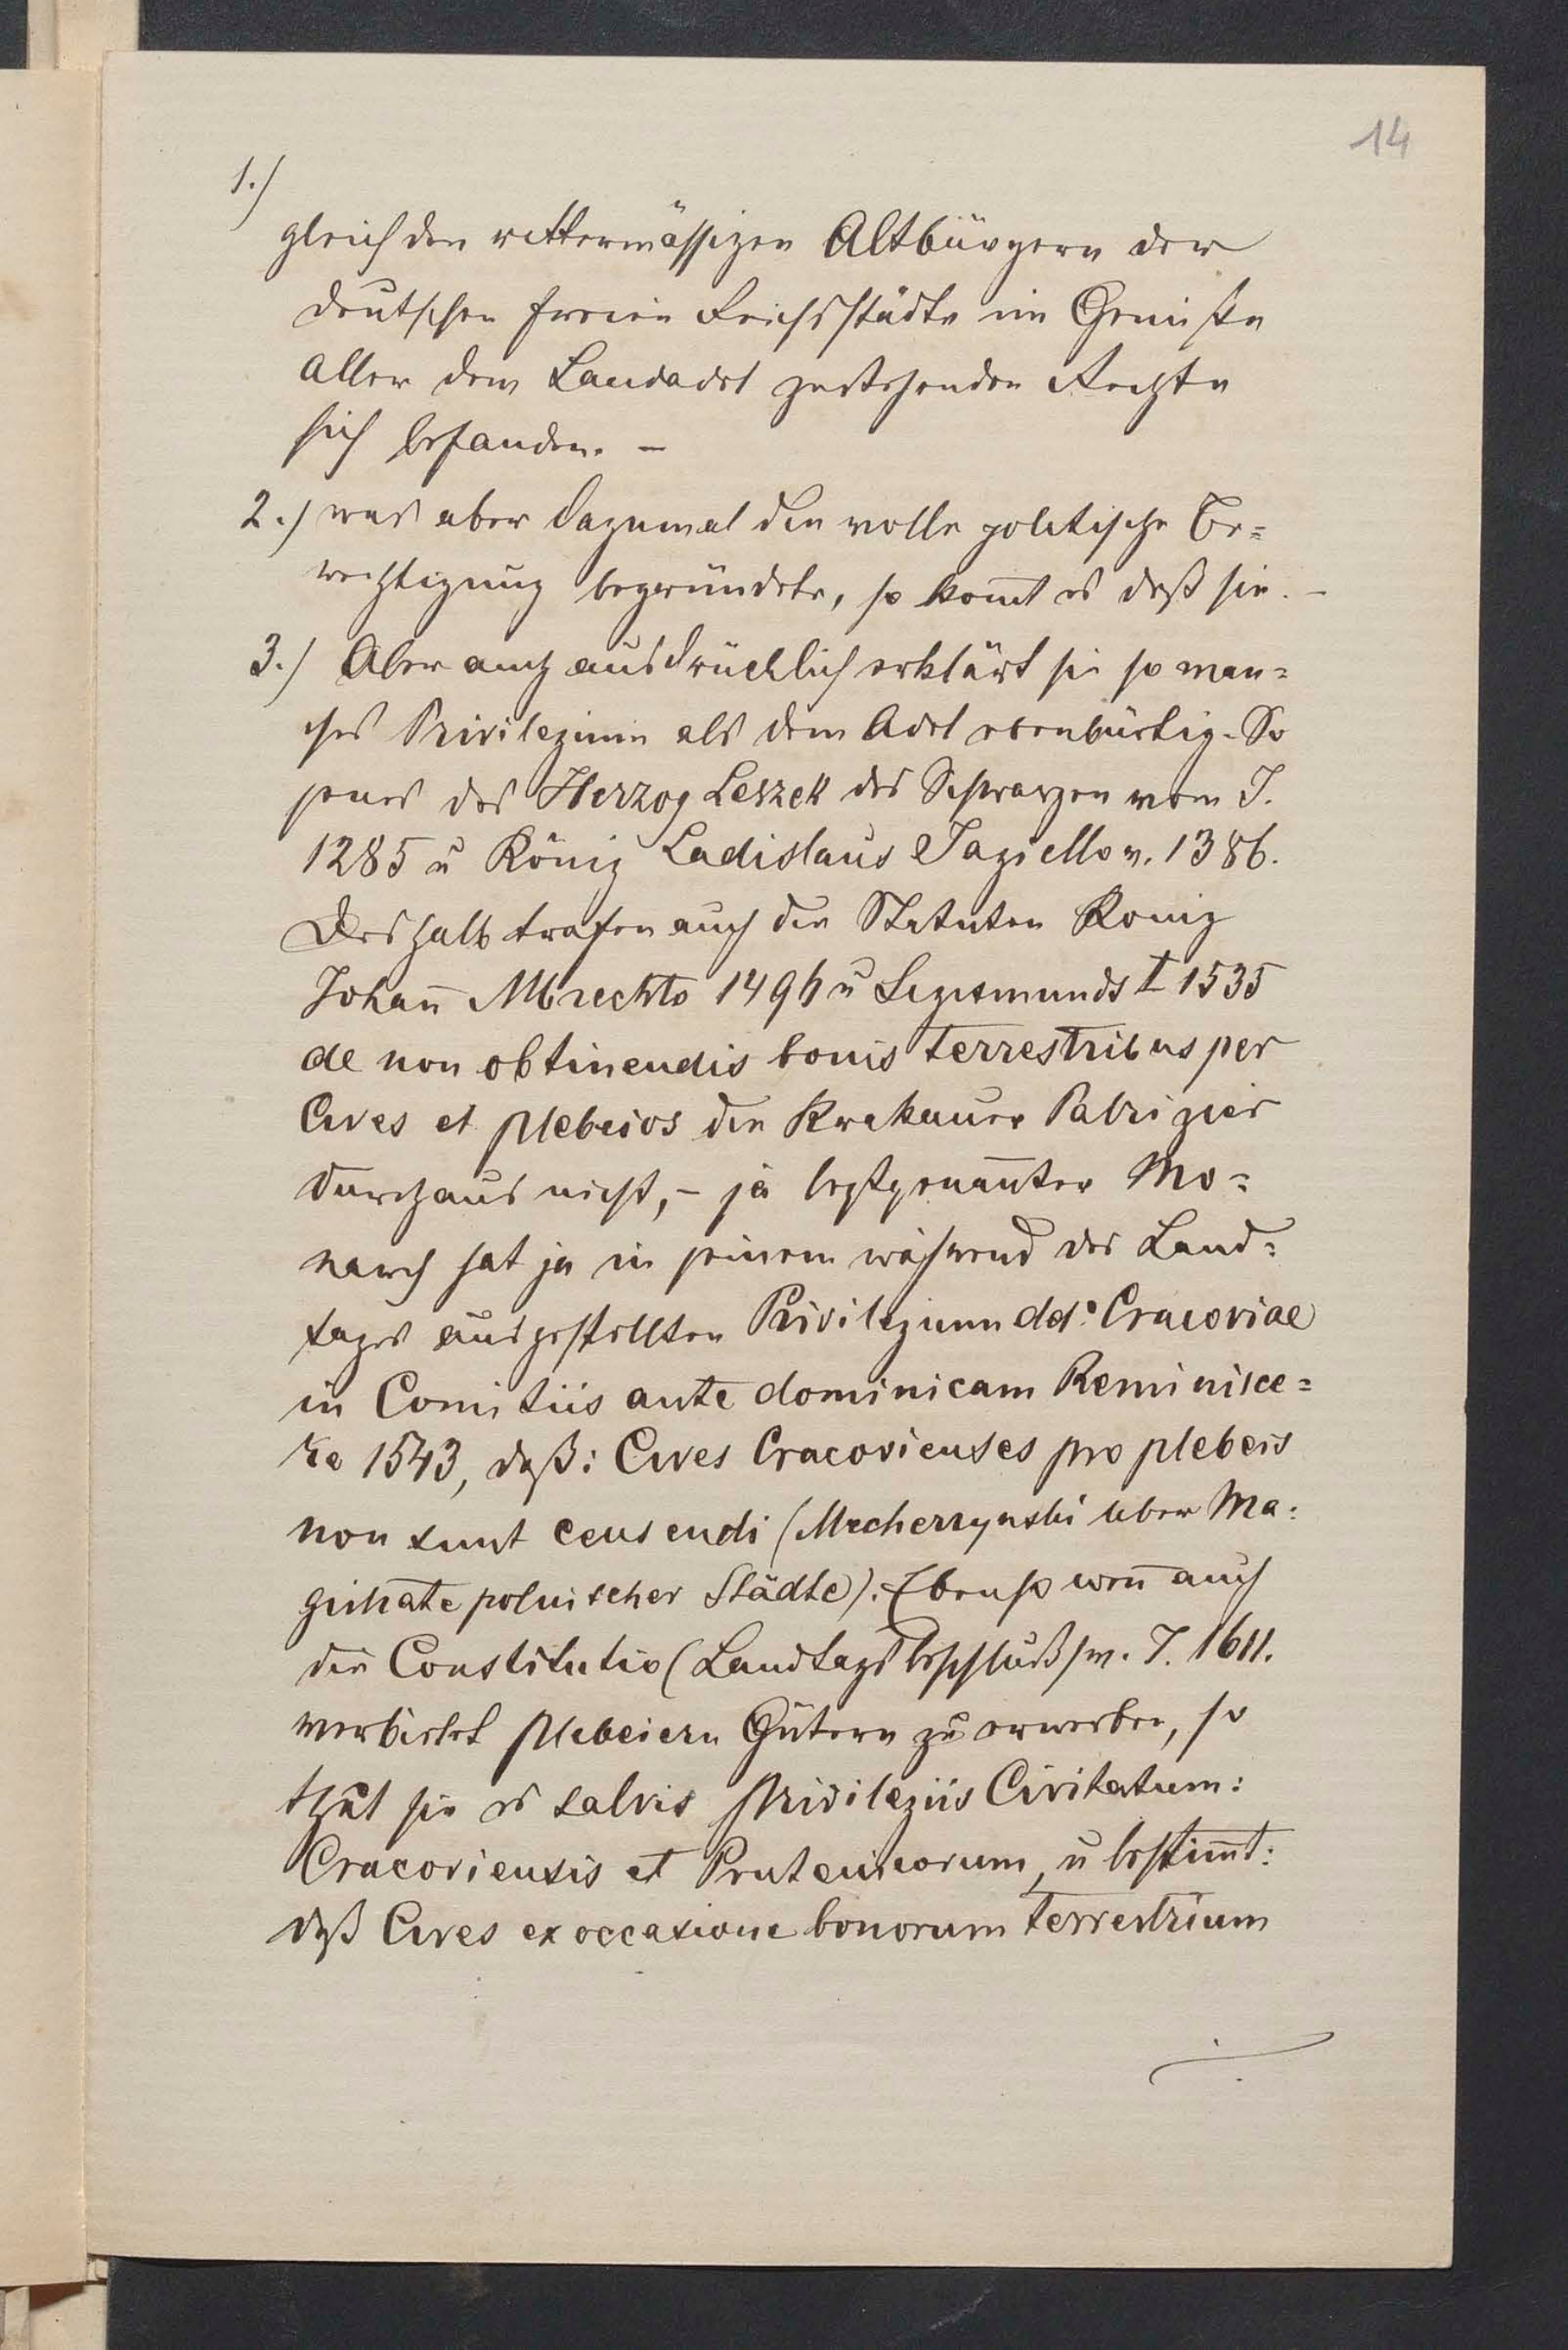 14
1.)
gleich den rittermässigen Altbürgern der
deutschen freien Reichsstädte im Genuße
aller dem Landadel zustehenden Rechte
sich befanden. –
2.) was aber dazumal die volle politische Be=
rechtigung begründete, so kom̄t es daß sie. –
3.) Aber auch ausdrücklich erklärt sie so man=
ches Privilegium als dem Adel ebenbürtig. So
jenes des Herzog Leszek des Schwarzen vom J.
1285 u König Ladislaus Jagiello v. 1386.
Deshalb trafen auch die Statuten König
Johan̄ Albrechts 1496 u Sigismunds I 1535
de non obtinendis bonis terrestribus per
Cives et plebeios die Krakauer Patrizier
durchaus nicht, – ja letztgenan̄ter Mo=
narch hat ja in seinem während des Land=
tages ausgestellten Privilegium dd.º Cracoviae
in Comitiis ante dominicam Reminisce=
re 1543, daß: Cives Cracovienses pro plebeis
non sunt censendi (Mecherzynski über Ma=
gistrate polnischer Städte). Ebenso wen̄ auch
die Constitutio (Landtagsbeschluß) v. J. 1611.
verbietet Plebeiern Gütern zu erwerben, so
thut sie es salvis privilegiis Civitatum:
Cracoviensis et Prutenicorum, u bestim̄t:
daß Cives ex occasione bonorum terrestrium